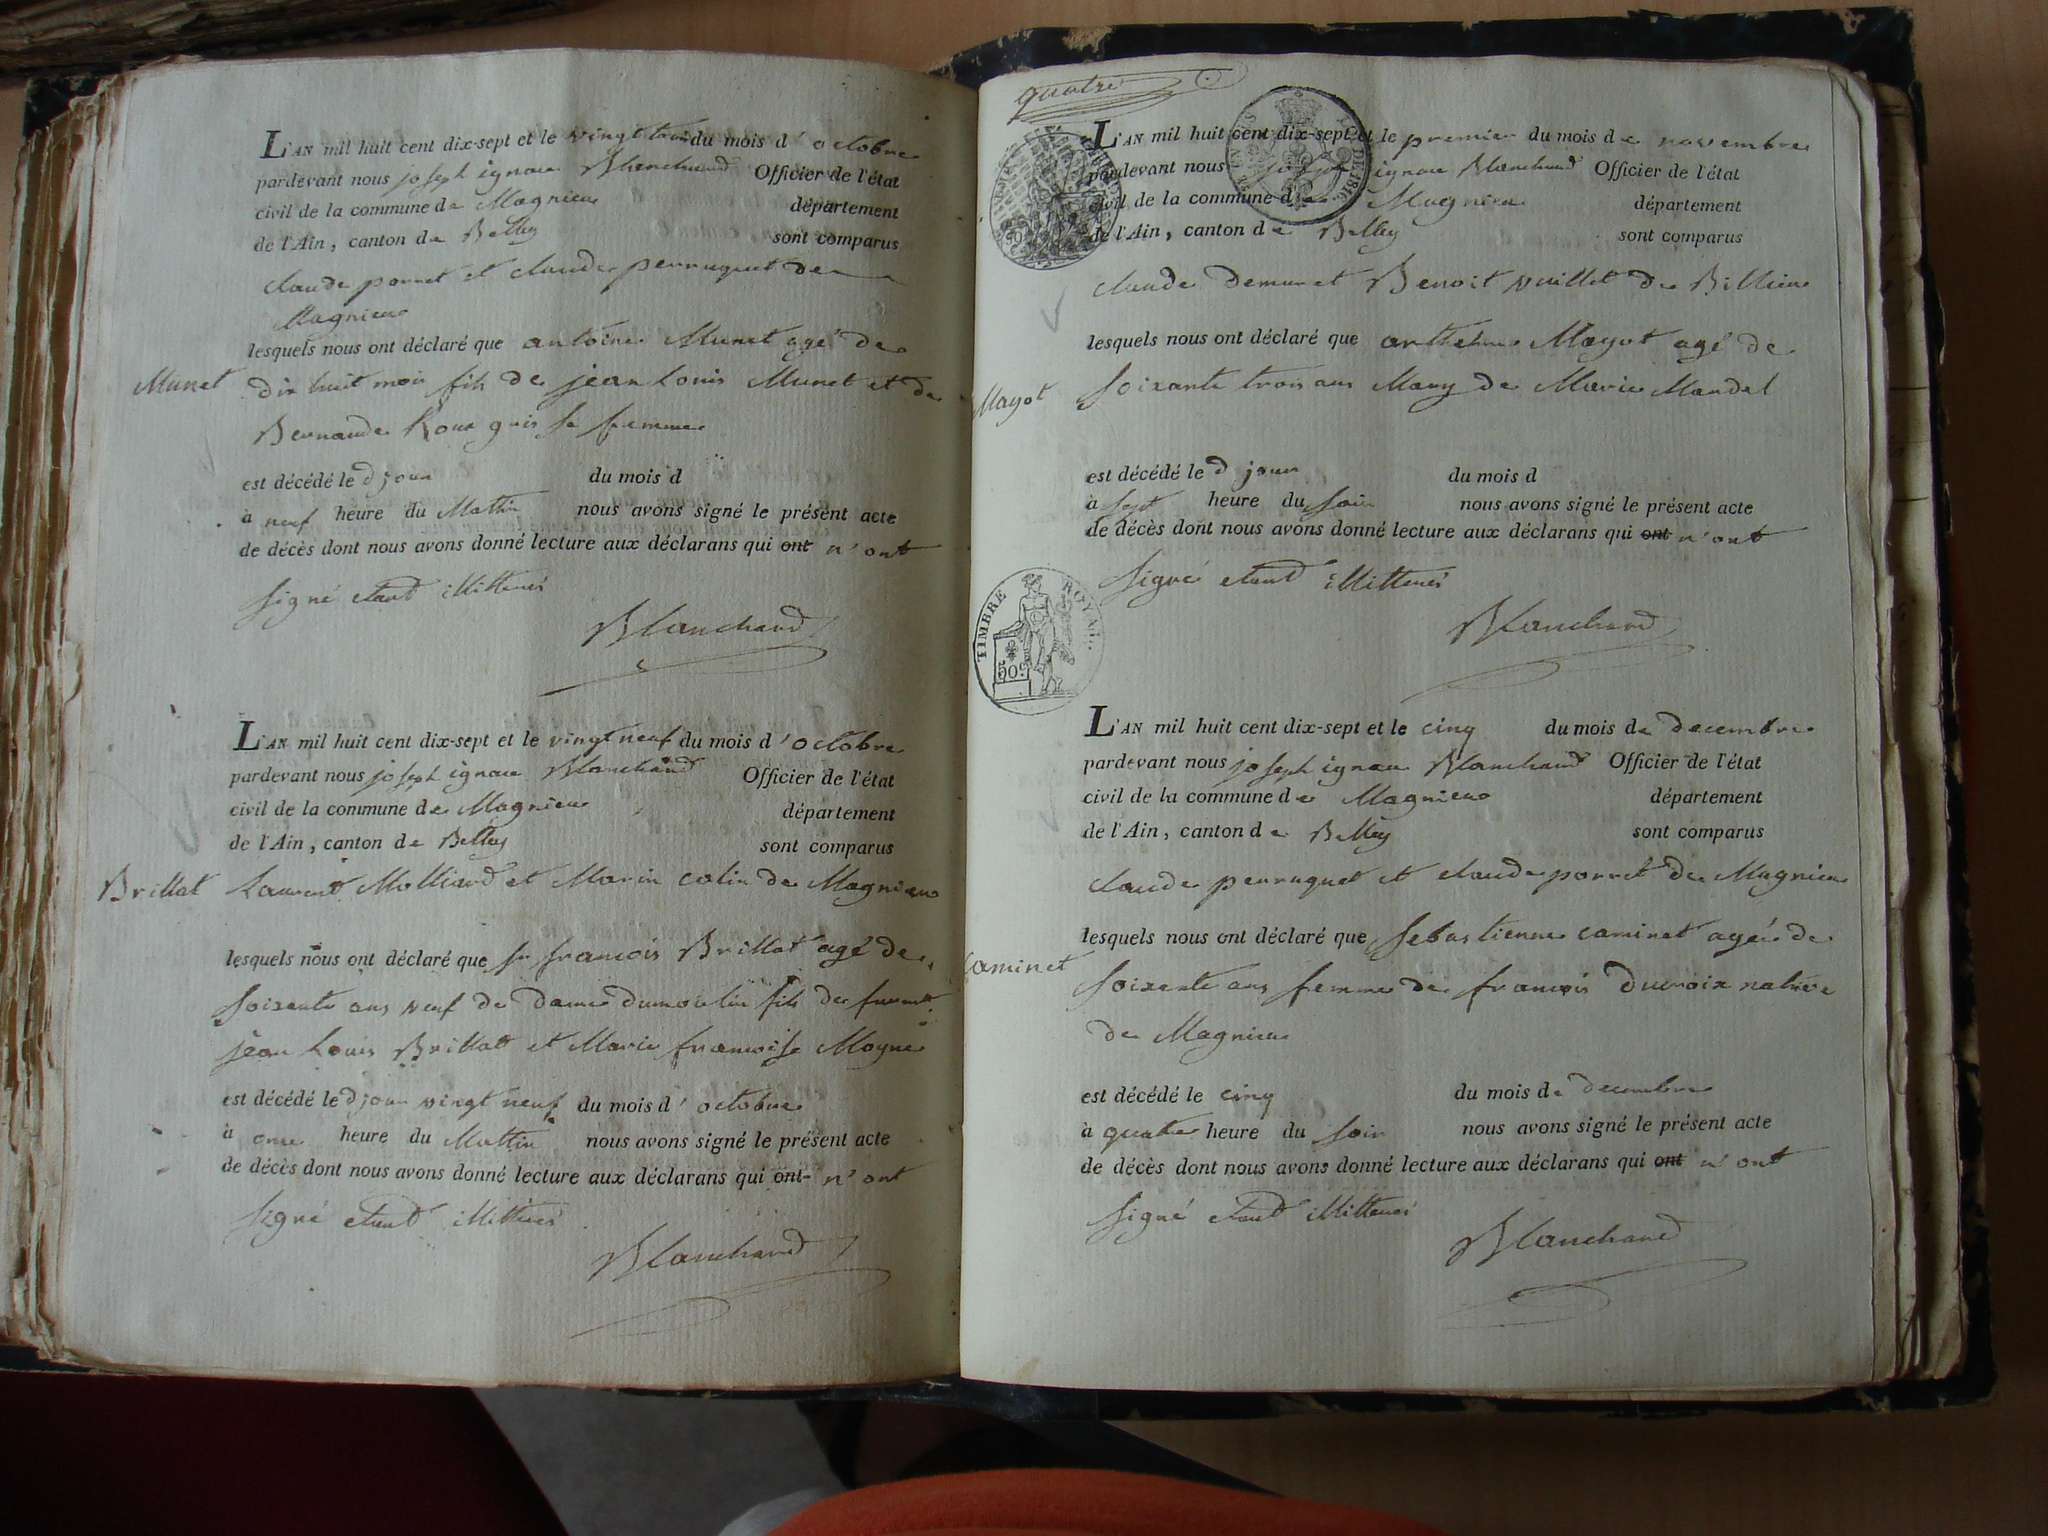 L'AN mil huit cent dix-sept et le vingt trois du mois d'octobre
pardevant nous joseph ignace Blanchard Officier de l'état
civil de la commune de Magnieu département
de l'Ain, canton de Belley sont comparus
claude porret et claude perruquet de
Magnieu
lesquels nous ont déclaré que antoine Munet agé de
Munet
dix huit mois fils de jean Louis Munet et de
Bernarde Roux sa femme
est décédé le d jour du mois d
à neuf heure du Mattin nous avons signé le présent acte
de décès dont nous avons donné lecture aux déclarans qui ont n'ont
signé etant illitterés
Blanchard
L'AN mil huit cent dix-sept et le vingt neuf du mois d'octobre
pardevant nous joseph ignace Blanchard Officier de l'état
civil de la commune de Magnieu département
de l'Ain, canton de Belley sont comparus
Brillat
Laurent Molliard et Marin colin de Magnieu
lesquels nous ont déclaré que sr francois Brillat agé de
soixante ans veuf de dame dumoulin fils de
jean Louis Brillat et Marie francoise Moyne
est décédé le d jour vingt neuf du mois d'octobre
à onze heure du Mattin nous avons signé le présent acte
de décès dont nous avons donné lecture aux déclarans qui ont n'ont
signé etant illitterés
Blanchard
quatre
L'AN mil huit cent dix-sept et le premier du mois de novembre
pardevant nous joseph ignace Blanchard Officier de l'état
civil de la commune de Magnieu département
de l'Ain, canton de Belley sont comparus
claude demur et Benoit vuillet de Billieu
lesquels nous ont déclaré que anthelme Mayot agé de
Mayot
soixante trois ans Mary de Marie Mandel
est décédé le d jour du mois d
à sept heure du soir nous avons signé le présent acte
de décès dont nous avons donné lecture aux déclarans qui ont n'ont
signé etant illitterés
Blanchard
TIMBRE ROYAL
50c
L'AN mil huit cent dix-sept et le cinq du mois de decembre
pardevant nous joseph ignace Blanchard Officier de l'état
civil de la commune de Magnieu département
de l'Ain, canton de Belley sont comparus
claude perruquet et claude porret de Magnieu
lesquels nous ont déclaré que sebastienne caminet agée de
Caminet
soixante ans femme de francois ducroix native
de Magnieu
est décédé le cinq du mois de decembre
à quatre heure du soir nous avons signé le présent acte
de décès dont nous avons donné lecture aux déclarans qui ont n'ont
signé etant illitterés
Blanchard